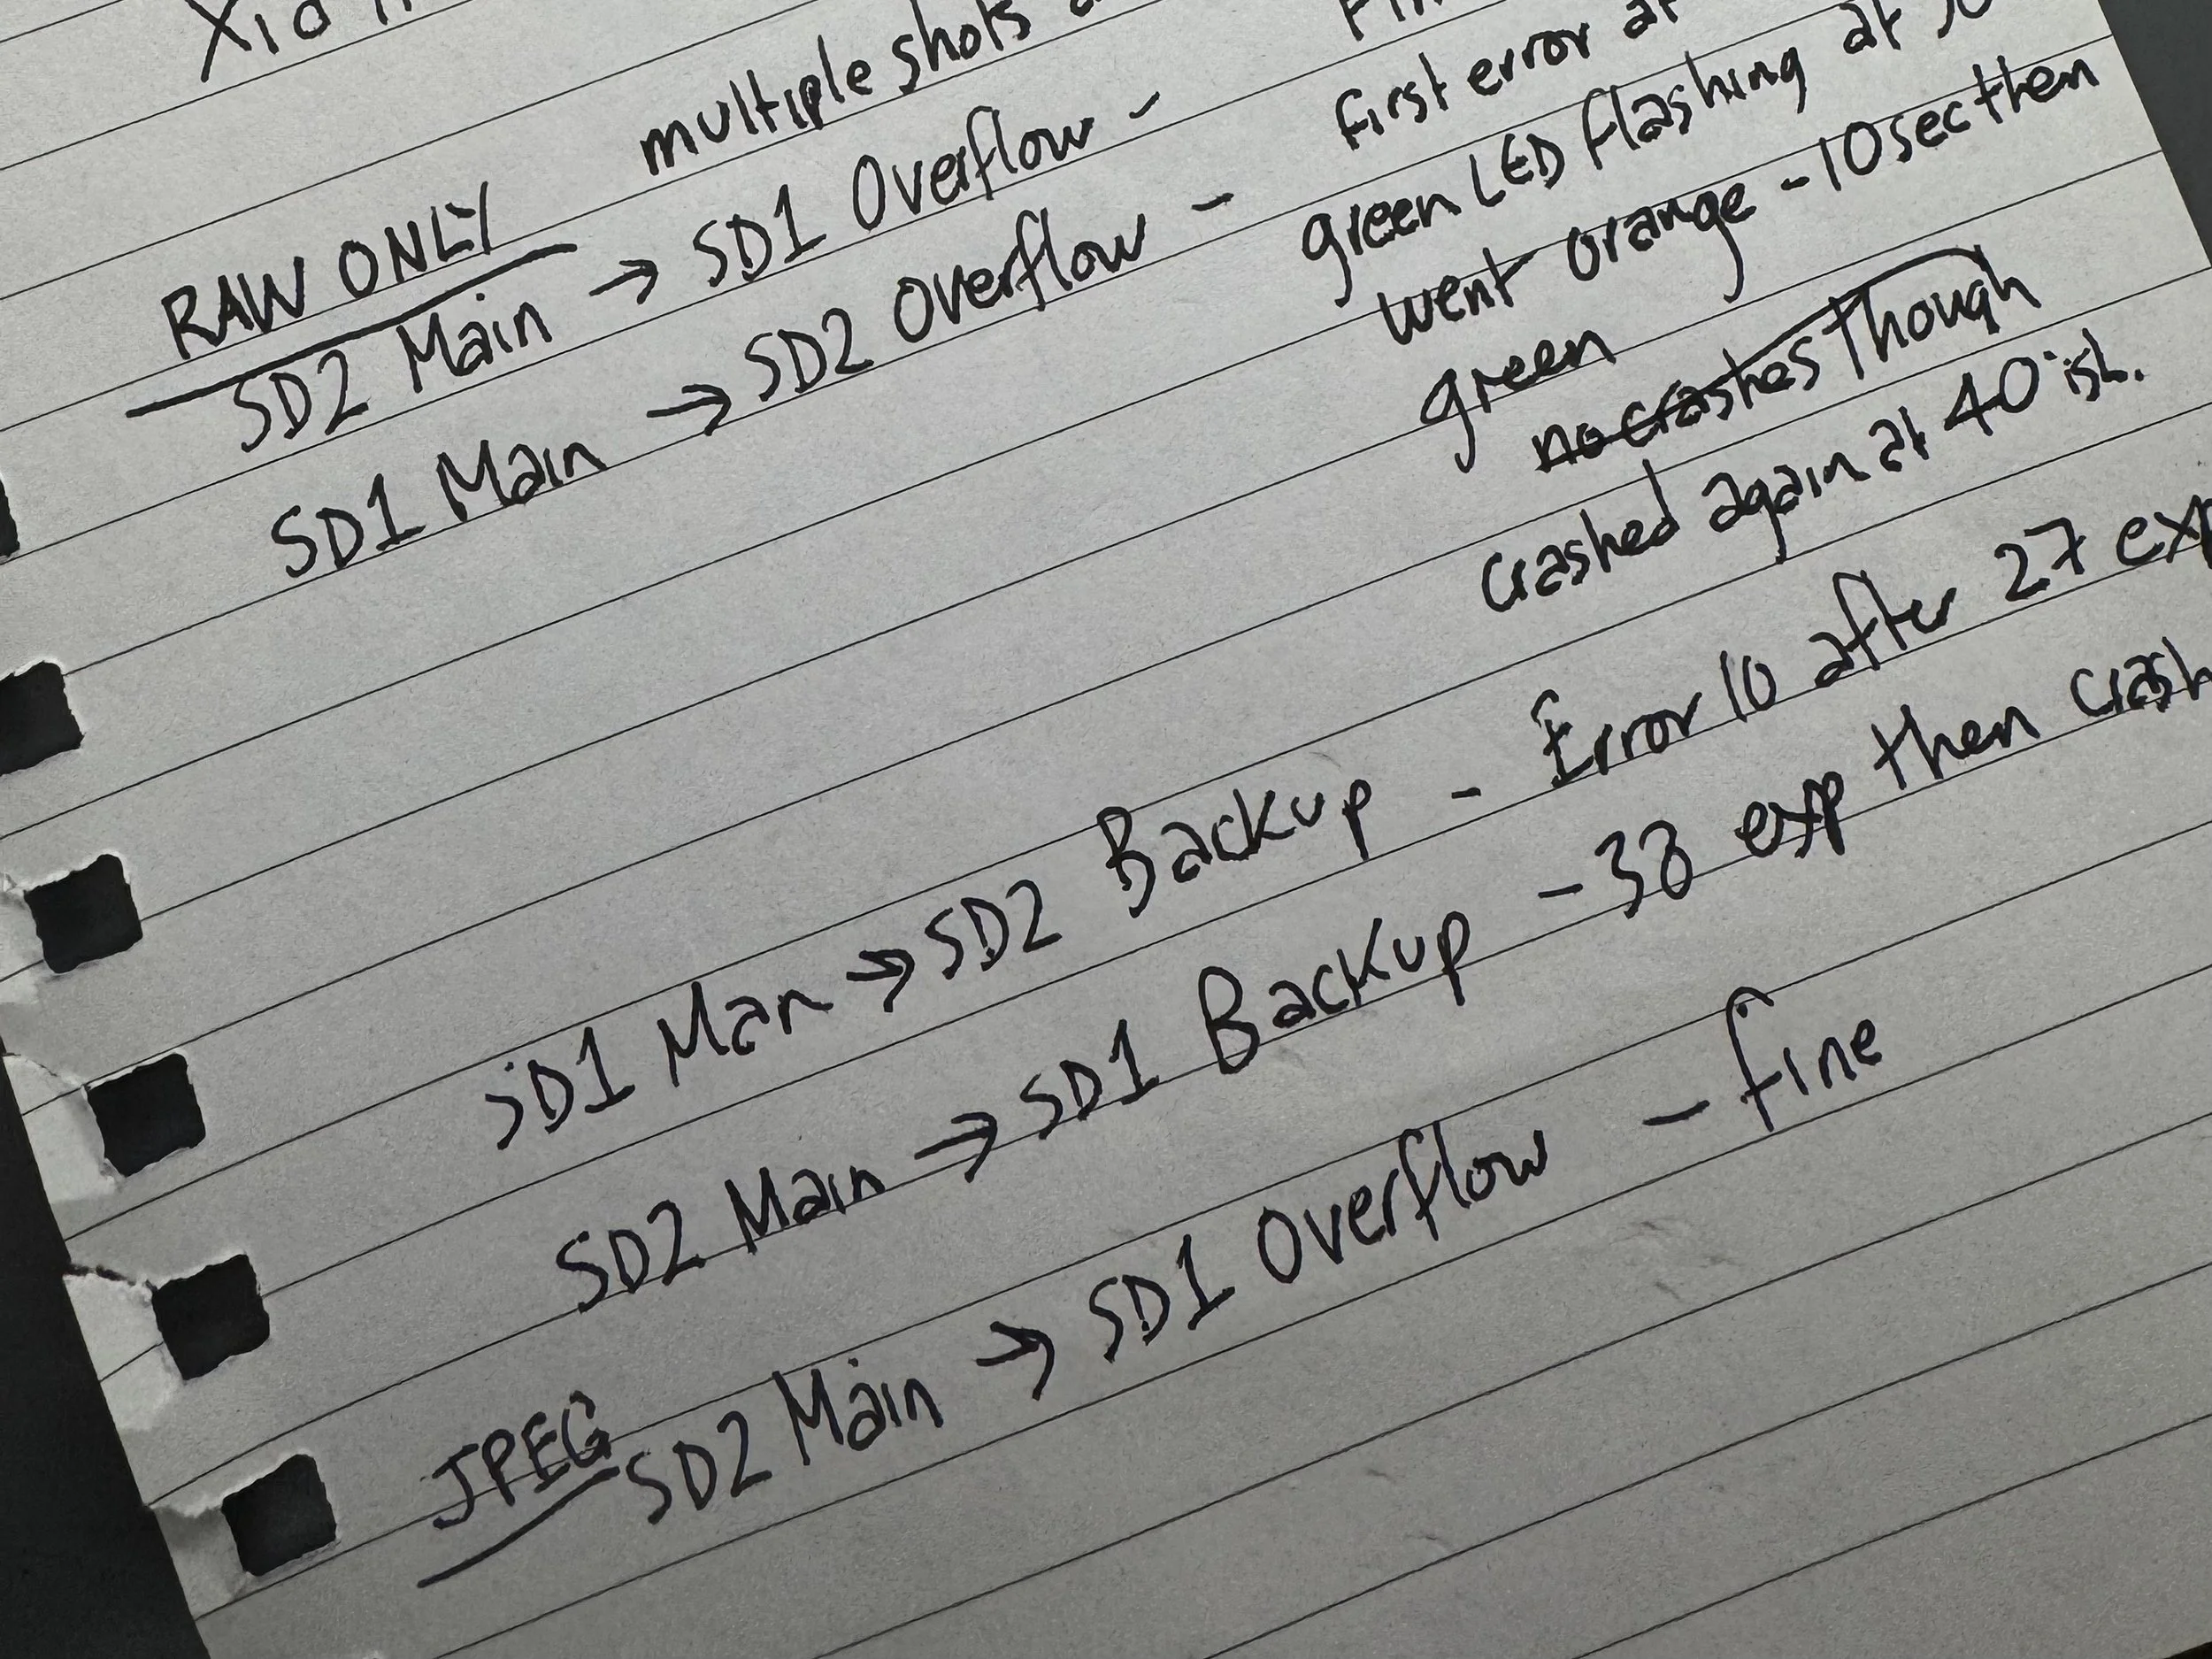 multiple shots
RAW ONLY
SD2 Main → SD1 Overflow - first error at
SD1 Main → SD2 Overflow - green LED flashing at
went orange - 10 sec then
green
no crashes though
crashed again at 40 ish.
SD1 Man → SD2 Backup - Error 10 after 27 exp
SD2 Main → SD1 Backup - 38 exp then crash
JPEG
SD2 Main → SD1 Overflow - fine